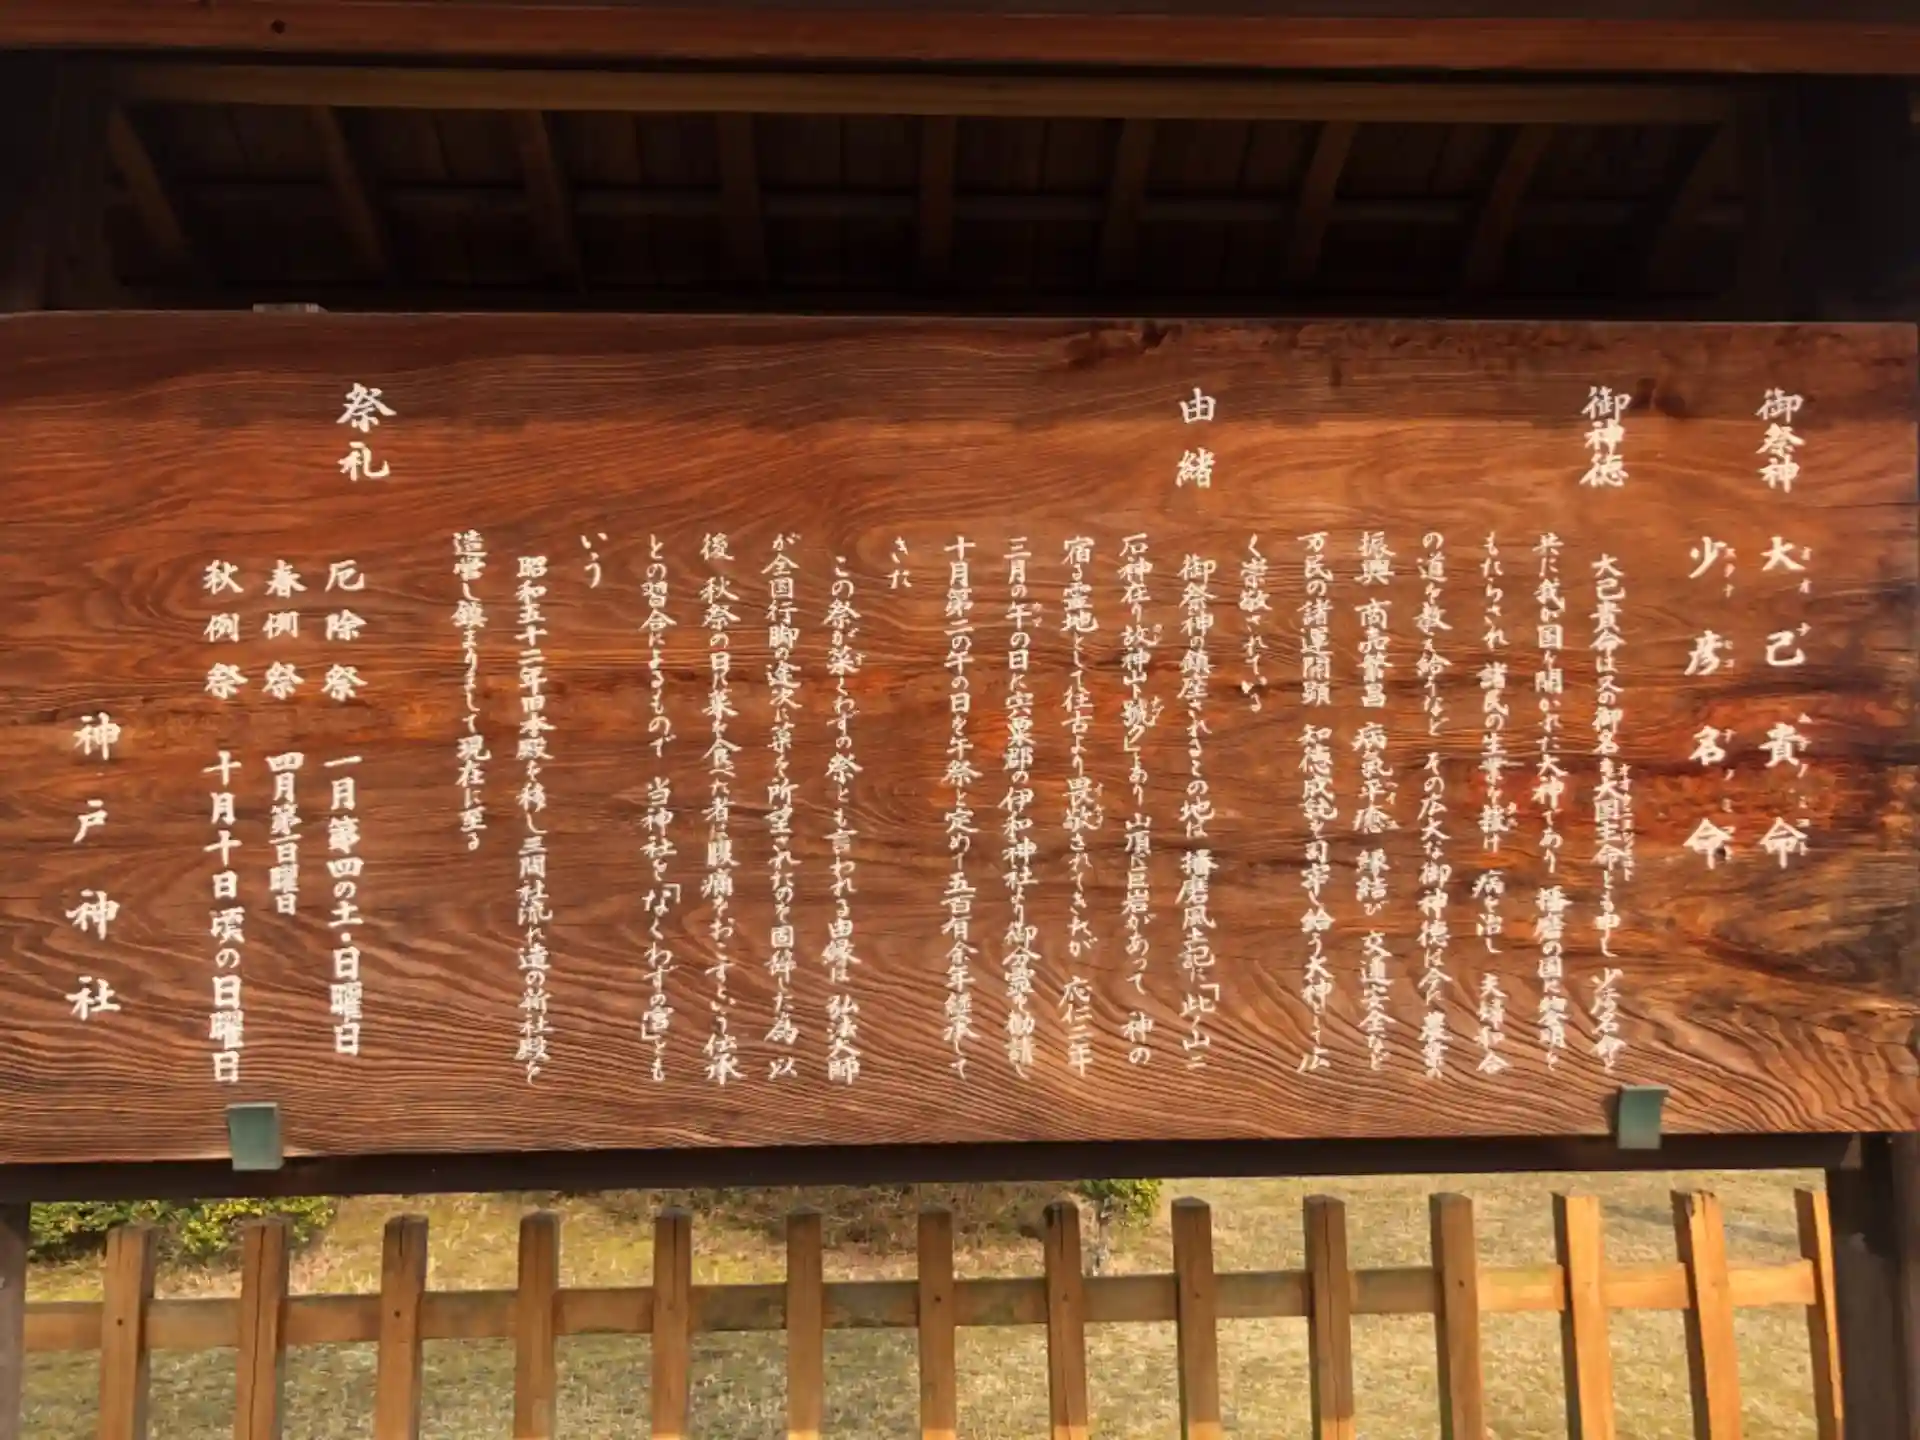 御祭神 大己貴命
少彦名命
御神徳
大己貴命は又の御名を大国主命とも申し 少彦名命と
共に我が国を開かれた大神であり 播磨の国に
もたらされ 諸民の生業を授け 病を治し 夫婦和合
の道を教え給うなど その広大な御神徳は今に 農業の
振興 商売繁昌 病氣平癒 縁結び 交通安全など
万民の諸運開顕 知徳成就を司宰し給う大神として広
く崇敬されている
由緒
御祭神の鎮座されるこの地は 播磨風土記に「此ノ山ニ
石神在り故神山ト號ク」とあり 山頂に巨岩があって 神の
宿る霊地として往古より畏敬されてきたが 応仁三年
三月の午の日に宍粟郡の伊和神社より御分霊を勧請し
十月第二の午の日を午祭と定めて五百有余年経承して
きた
この祭が菜くわずの祭とも言われる由縁は 弘法大師
が全国行脚の途次に菜を所望されたのを固辞した為 以
後 秋祭の日に菜を食べた者は腹痛をおこすという伝承
との習合によるもので 当神社を「なくわずの宮」とも
いう
昭和五十二年旧本殿を移し三間社流れ造の新社殿を
造営し鎮まりまして現在に至る
祭礼
厄除祭 一月第四の土・日曜日
春例祭 四月第一日曜日
秋例祭 十月十日頃の日曜日
神戸神社